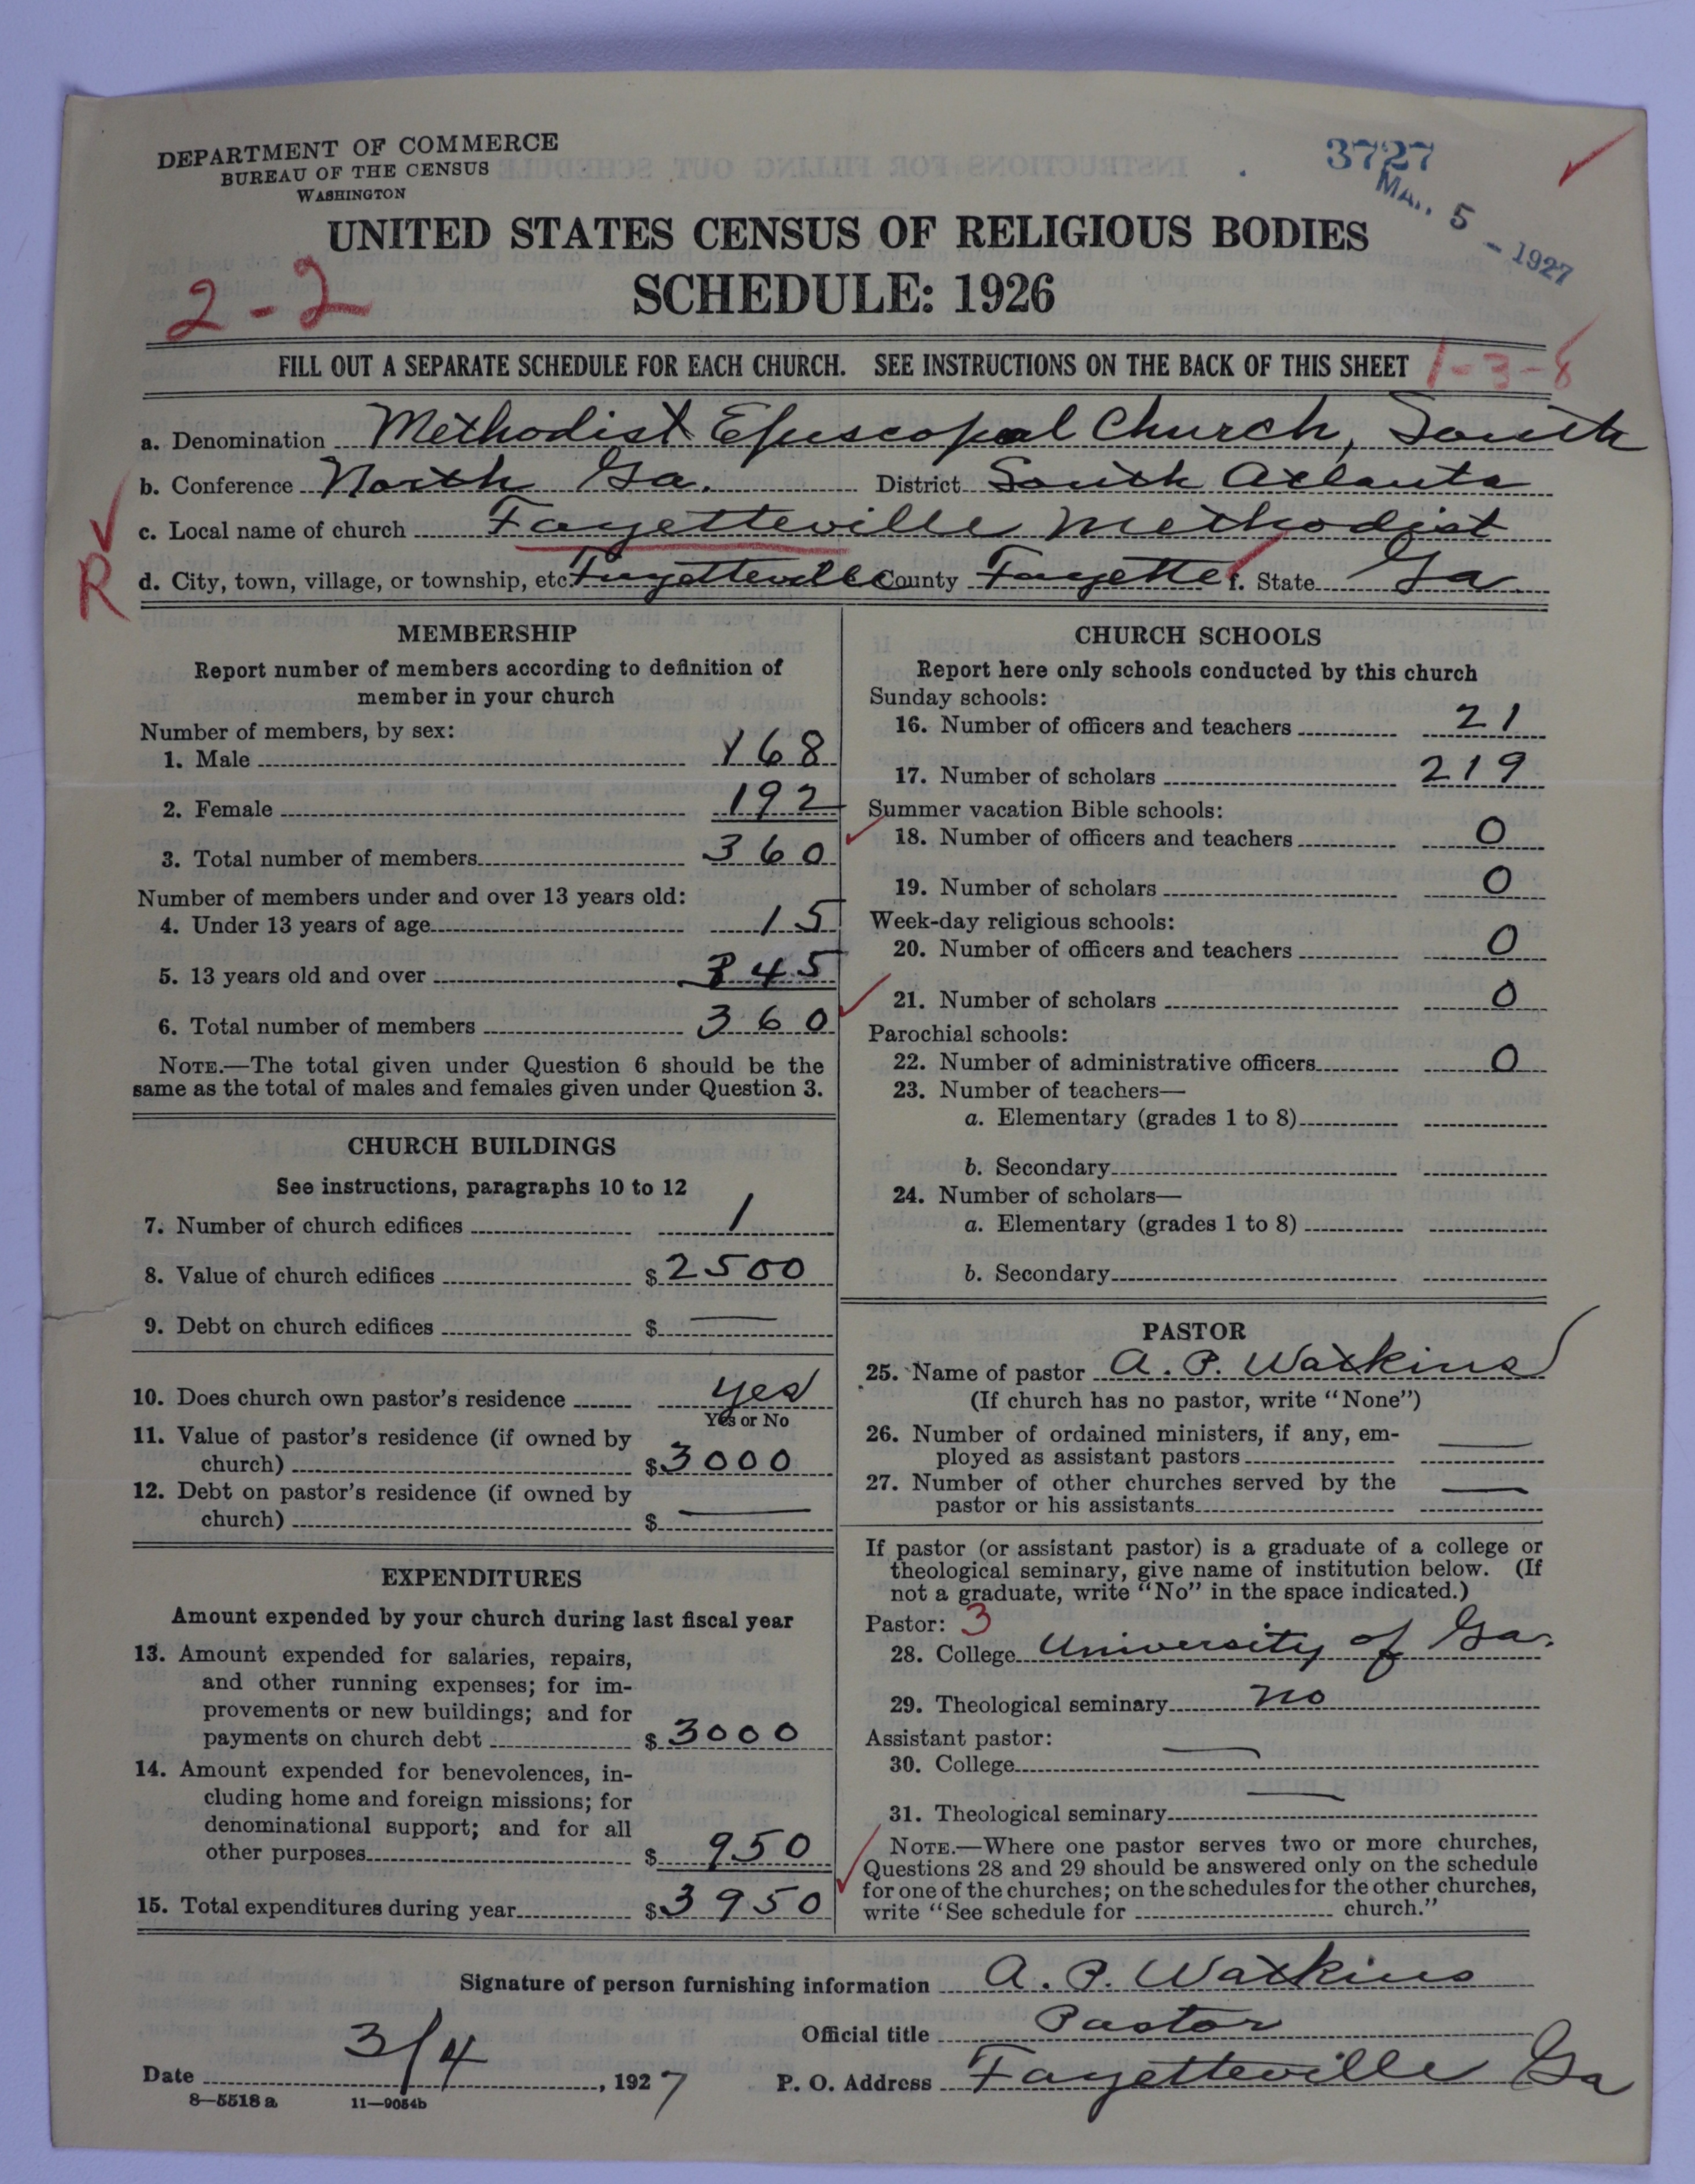 DEPARTMENT OF COMMERCE
BUREAU OF THE CENSUS
WASHINGTON
3727
MAR. 5 - 1927
UNITED STATES CENSUS OF RELIGIOUS BODIES
SCHEDULE: 1926
2-2
FILL OUT A SEPARATE SCHEDULE FOR EACH CHURCH. SEE INSTRUCTIONS ON THE BACK OF THIS SHEET 1-3-8
a. Denomination Methodist Episcopal Church, South
b. Conference North Ga. District South Atlanta
c. Local name of church Fayetteville Methodist
R d. City, town, village, or township, etc. Fayetteville County Fayette f. State Ga.
MEMBERSHIP
Report number of members according to definition of
member in your church
Number of members, by sex:
1. Male 168
2. Female 192
3. Total number of members 360
Number of members under and over 13 years old:
4. Under 13 years of age 15
5. 13 years old and over 345
6. Total number of members 360
NOTE.—The total given under Question 6 should be the
same as the total of males and females given under Question 3.
CHURCH BUILDINGS
See instructions, paragraphs 10 to 12
7. Number of church edifices 1
8. Value of church edifices $ 2500
9. Debt on church edifices $ —
10. Does church own pastor's residence yes
Yes or No
11. Value of pastor's residence (if owned by
church) $ 3000
12. Debt on pastor's residence (if owned by
church) $ —
EXPENDITURES
Amount expended by your church during last fiscal year
13. Amount expended for salaries, repairs,
and other running expenses; for im-
provements or new buildings; and for
payments on church debt $ 3000
14. Amount expended for benevolences, in-
cluding home and foreign missions; for
denominational support; and for all
other purposes $ 950
15. Total expenditures during year $ 3950
CHURCH SCHOOLS
Report here only schools conducted by this church
Sunday schools:
16. Number of officers and teachers 21
17. Number of scholars 219
Summer vacation Bible schools:
18. Number of officers and teachers 0
19. Number of scholars 0
Week-day religious schools:
20. Number of officers and teachers 0
21. Number of scholars 0
Parochial schools:
22. Number of administrative officers 0
23. Number of teachers—
a. Elementary (grades 1 to 8)
b. Secondary
24. Number of scholars—
a. Elementary (grades 1 to 8)
b. Secondary
PASTOR
25. Name of pastor A. P. Watkins
(If church has no pastor, write "None")
26. Number of ordained ministers, if any, em-
ployed as assistant pastors —
27. Number of other churches served by the
pastor or his assistants —
If pastor (or assistant pastor) is a graduate of a college or
theological seminary, give name of institution below. (If
not a graduate, write "No" in the space indicated.)
Pastor: 3
28. College University of Ga.
29. Theological seminary no
Assistant pastor:
30. College —
31. Theological seminary —
NOTE.—Where one pastor serves two or more churches,
Questions 28 and 29 should be answered only on the schedule
for one of the churches; on the schedules for the other churches,
write "See schedule for church."
Signature of person furnishing information A. P. Watkins
Official title Pastor
Date 3/4, 1927 P. O. Address Fayetteville Ga
8—5518 a 11—9054b